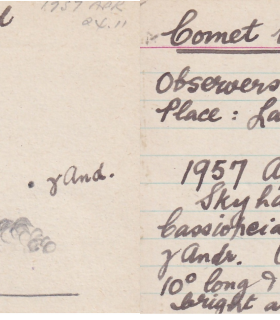 1957 APR
γ And.
Comet
Observers
Place : La
1957 A
Sky ha
Cassiopeia
γ Andr.
10° long &
bright a